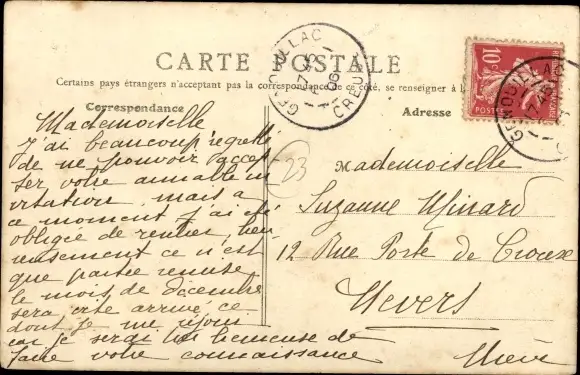 CARTE POSTALE
Certains pays étrangers n'acceptent pas la correspondance de ce côté, se renseigner à l
Correspondance
Adresse
GENOUILLAC
CREUSE
06
10c
POSTES
GENOUILLAC
23
Mademoiselle
J'ai beaucoup regretté
de ne pouvoir accep
ter votre aimable in
vitation, mais a
ce moment j'ai été
obligée de rentrer, heu
reusement ce n'est
que partie remise
le mois de décembre
sera vite arrivé, ce
dont je me réjoui
car je serai heureuse de
faire votre connaissance
Mademoiselle
Suzanne Minard
12 Rue Porte de Croux
Nevers
Nièvre